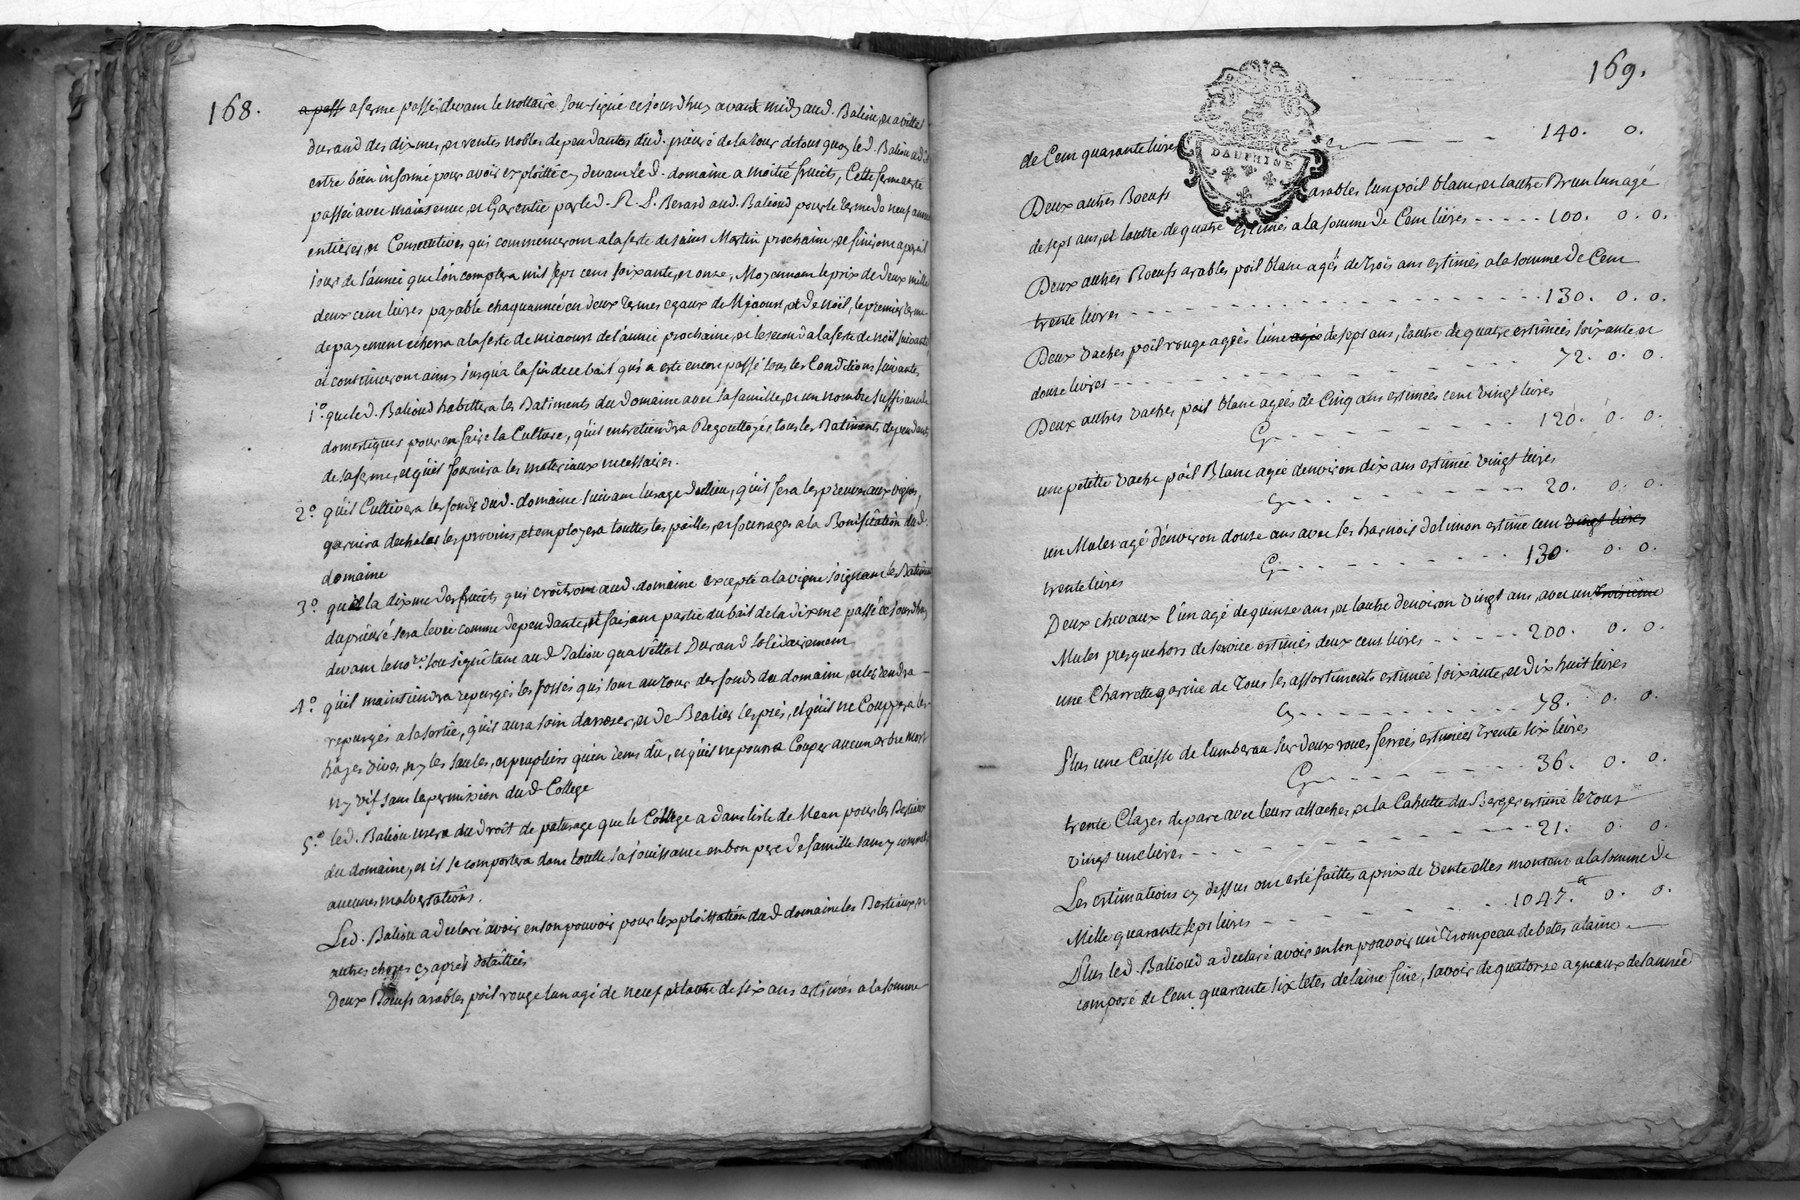 168.
a ferme passé, devant le nottaire sousigné cejourdhuy avant midy aud. Baliou, et avillat
durand des dixmes, et rentes nobles dependantes dud. prieuré de la tour de tous quoy led. Baliou a dit
estre bien informé pour avoir exploitté cy devant led. domaine a moitié fruits, Cette ferme a esté
passée avec maintenue, et Garentie par led. R. P. Berard aud. Balioud pour le terme de neuf années
entieres, et Consecutives qui commenceront a la feste de saint Martin prochaine, et finiront a pareil
jour de l'année que l'on comptera mil sept cent soixante, et onze, Moyennant le prix de deux mille
deux cent livres payable chaqu'année en deux termes egaux de Miaoust, et de noël, le premier terme
de payement echerra a la feste de miaoust de l'année prochaine, et le second a la feste de noël suivante,
et continueront ainsy jusqu'a la fin de ce bail qui a esté encore passé sous les Conditions suivantes
1.° que led. Balioud habittera les Batiments du domaine avec sa famille, et un nombre suffisant de
domestiques pour en faire la Culture, qu'il entretiendra Regouttoyés tous les Batiments dependants
de sa ferme, et qu'il fournira les materiaux necessaires.
2.° qu'il Cultivera les fonds dud. domaine suivant l'usage du lieu, qu'il fera les preuves aux vignes,
garnira d'echalas les provins, et employera touttes les pailles, et fourrages a la Bonification dud.
domaine
3.° que la dixme des fruits qui croitront aud. domaine excepté a la vigne joignant les Batiments
du prieuré sera levée comme dependante, et faisant partie du bail de la dixme passé ce jourdhuy
devant le no.re sousigné tant aud. Baliou qu'a villat Durand solidairement
4.° qu'il maintiendra repurgés les fossés qui sont au tour des fonds du domaine, et les rendra
repurgés a la sortie, qu'il aura soin d'arroser, et de Bealier les prés, et qu'il ne Couppera les
hayes vives, ny les saules, et peupliers qu'en tems dû, et qu'il ne pourra Couper aucun arbre mort
ny vif sans la permission dud. College
5.° led. Baliou usera du droit de paturage que le College a dans l'isle de Mean pour les Bestiaux
du domaine, et il se comportera dans toutte sa jouissance en bon pere de famille sans y commettre
aucunes malversations.
Led. Baliou a declaré avoir en son pouvoir pour l'exploittation dud. domaine les Bestiaux, et
autres choses cy aprés détaillées
Deux Bœufs arables poil rouge l'un agé de neuf et l'autre de six ans estimés a la somme
169.
DAUPHINE
de Cent quarante livres 140. 0.
Deux autres Bœufs arables l'un poil blanc, et l'autre Brun l'un agé
de sept ans, et l'autre de quatre estimés a la somme de Cent livres 100. 0. 0.
Deux autres Bœufs arables poil blanc agés de trois ans estimés a la somme de Cent
trente livres 130. 0. 0.
Deux vaches poil rouge agées l'une agée de sept ans, l'autre de quatre estimées soixante, et
douze livres 72. 0. 0.
Deux autres vaches poil blanc agées de Cinq ans estimées cent vingt livres
Cy 120. 0. 0.
une petitte vache poil Blanc agée d'environ dix ans estimée vingt livres
Cy 20. 0. 0.
un Mulet agé d'environ douze ans avec les harnois de limon estimé cent vingt livres
trente livres Cy 130. 0. 0.
Deux chevaux l'un agé de quinze ans, et l'autre d'environ vingt ans, avec un troisieme
Mulet presque hors de service estimés deux cent livres 200. 0. 0.
une Charrette garnie de tous les assortiments estimée soixante, et dix huit livres
Cy 78. 0. 0.
Plus une Caisse de tumberau sur deux roues ferrées estimées trente six livres
Cy 36. 0. 0.
trente Clayes de parc avec leurs attaches, et la Cahutte du Berger estimé le tout
vingt une livres 21. 0. 0.
Les estimations cy dessus ont esté faittes a prix de vente elles montent a la somme de
Mille quarante sept livres 1047.tt 0. 0.
Plus led. Balioud a declaré avoir en son pouvoir un trouppeau de betes a laine
composé de Cent quarante six tetes de laine fine, savoir de quatorze agneaux de l'année